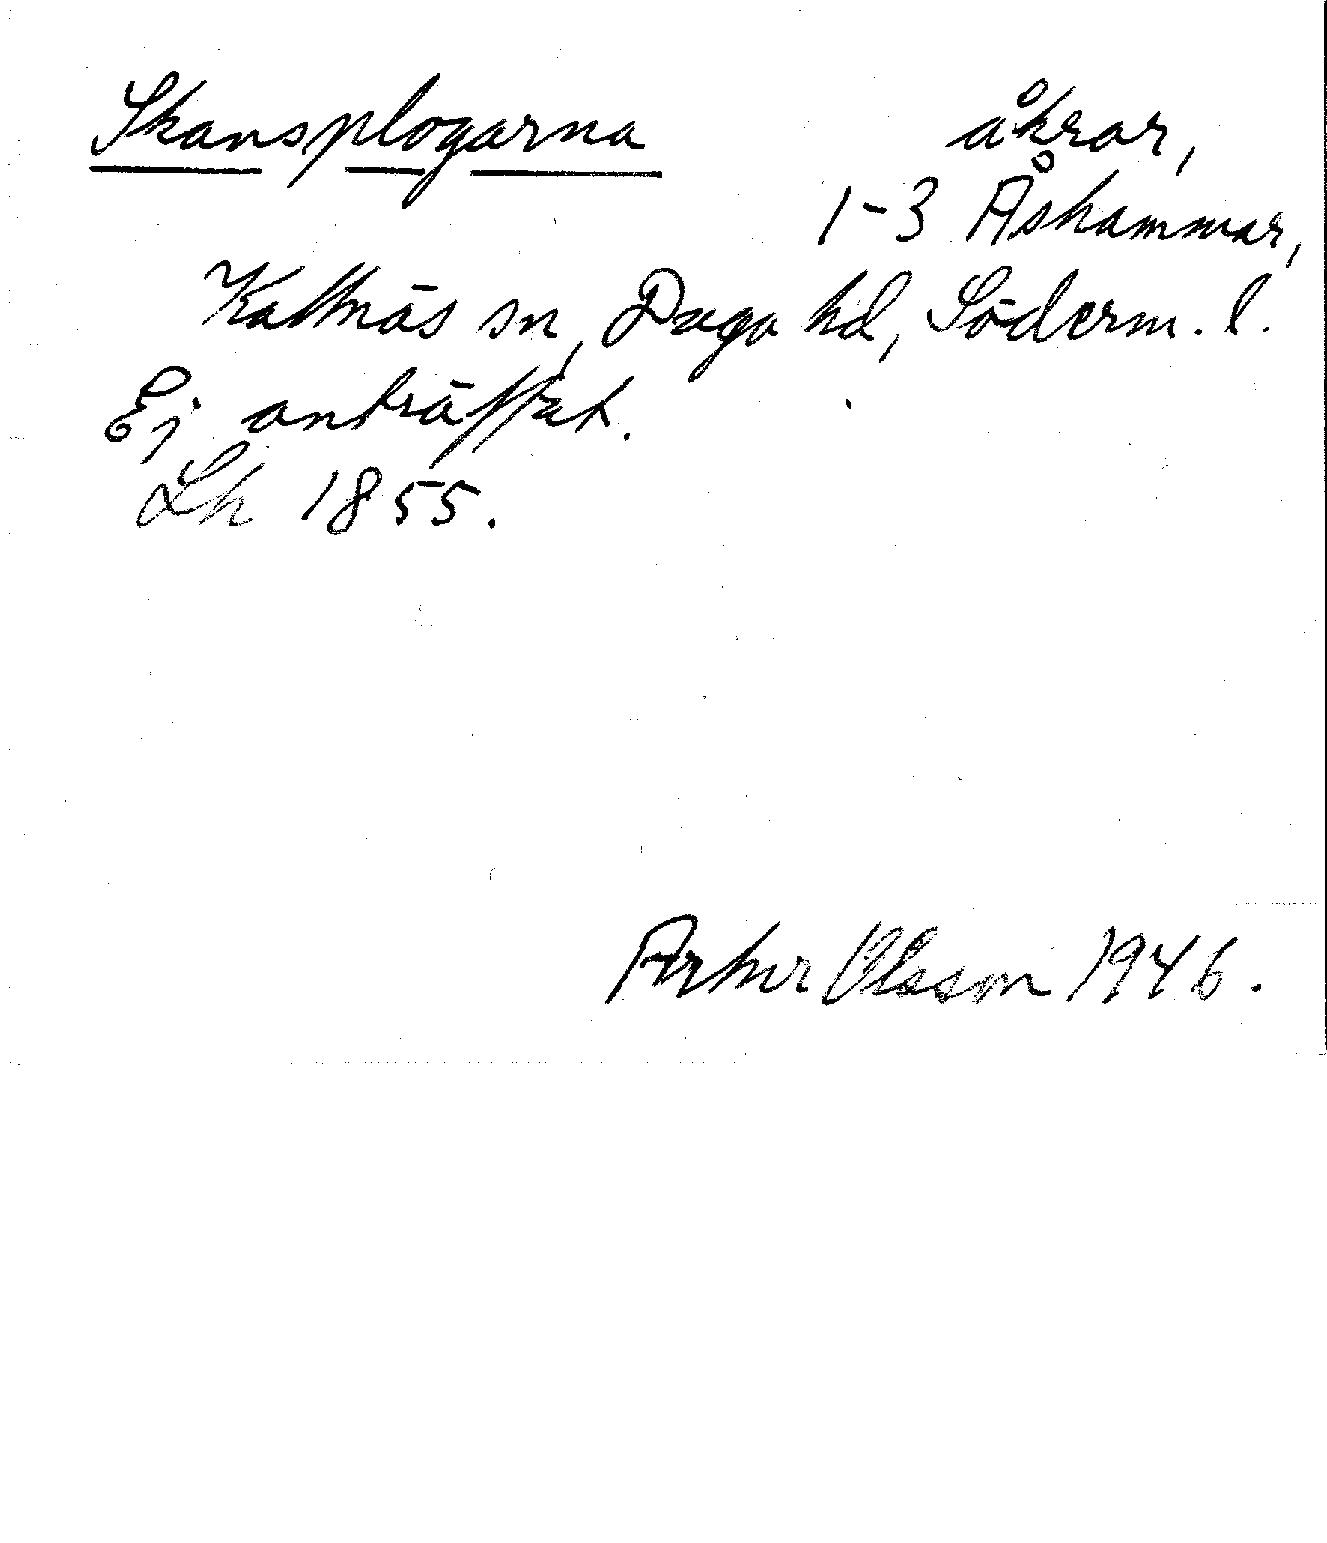 Skansplogarna åkrar,
1-3 Åshammar,
Kattnäs sn, Daga hd, Söderm. l.
Ej anträffat.
Lh 1855.
Artur Olsson 1946.